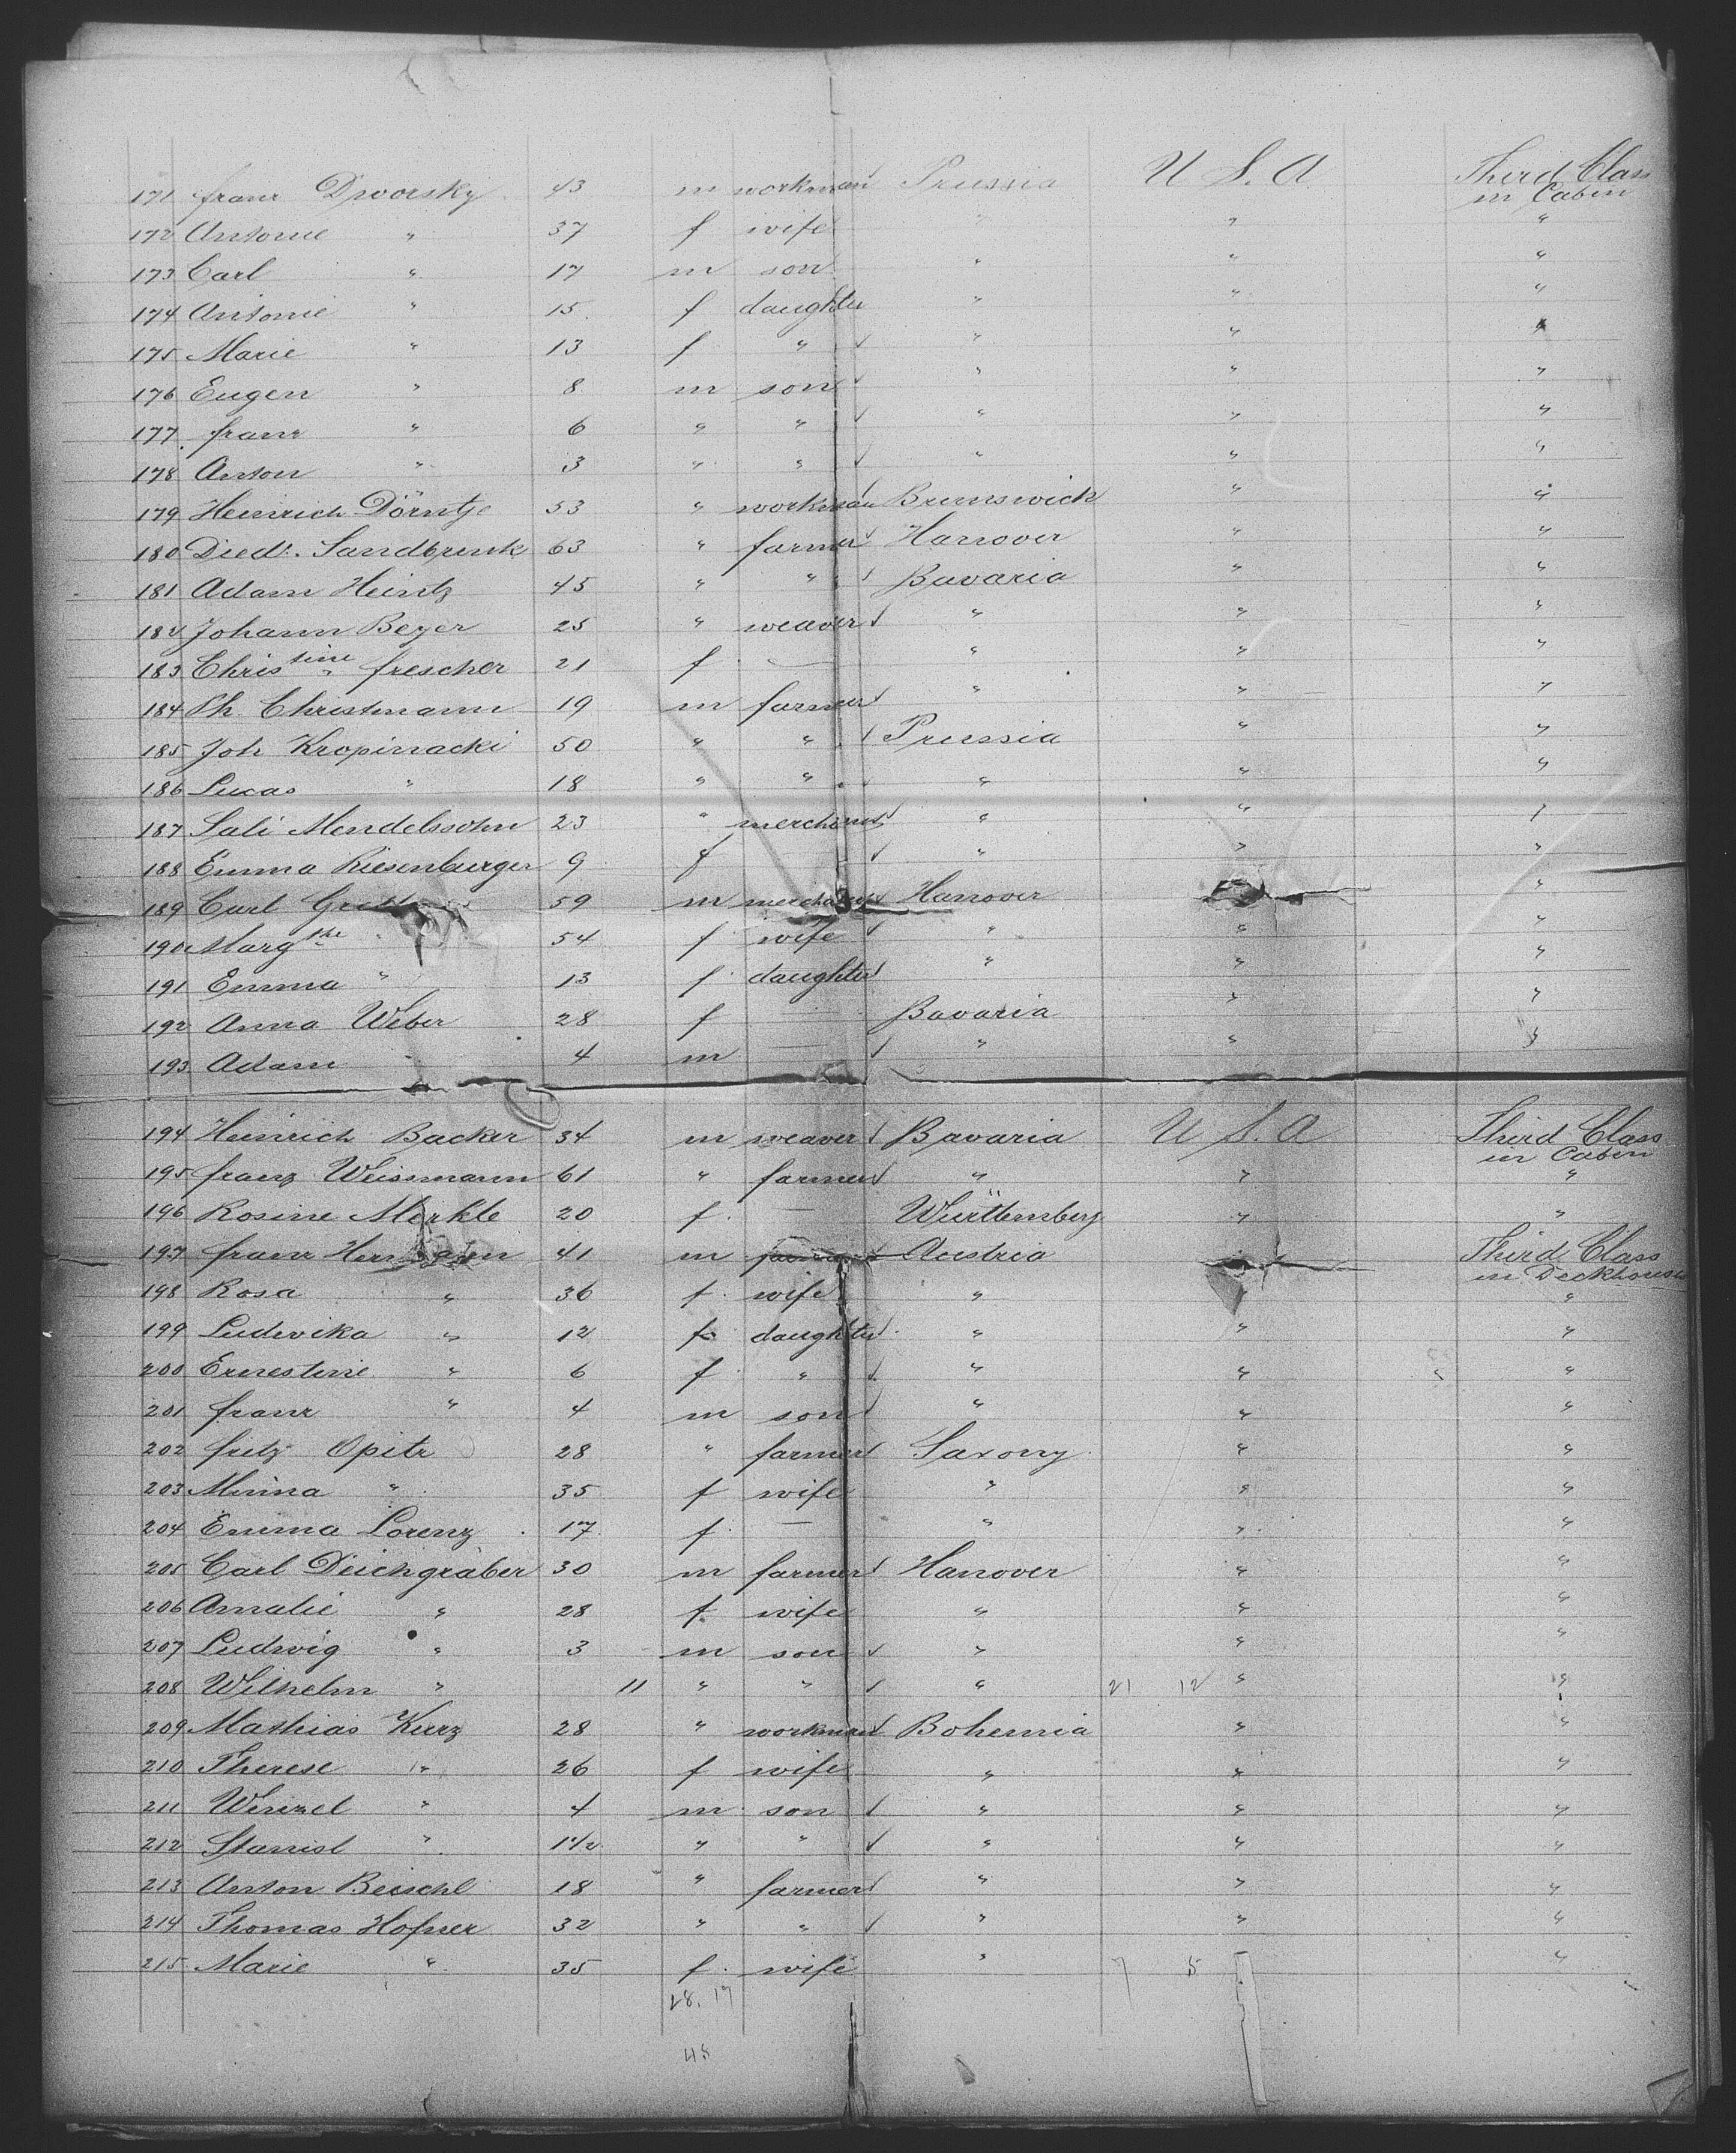 171 franz Dworsky 43 m workman Prussia U S. A. Third Class in Cabin
172 Antonie " 37 f wife " " "
173 Carl " 17 m son " " "
174 Antonie " 15 f daughter " " "
175 Marie " 13 f " " " "
176 Eugen " 8 m son " " "
177 franz " 6 " " " " "
178 Anton " 3 " " " " "
179 Heinrich Dörntje 53 " workman Brunswick " "
180 Died. Sandbrink 63 " farmer Hanover " "
181 Adam Heintz 45 " " Bavaria " "
182 Johann Beyer 25 " weaver " " "
183 Christine frescher 21 f — " " "
184 Ph. Christmann 19 m farmer " " "
185 Joh Kropinacki 50 " " Prussia " "
186 Lucas " 18 " " " " "
187 Sali Mendelssohn 23 " merchant " " "
188 Emma Riesenburger 9 f — " " "
189 Carl 59 m merchant Hanover "
190 Margthe " 54 f wife " " "
191 Emma " 13 f daughter " " "
192 Anna Weber 28 f — Bavaria " "
193 Adam 4 m — " " "
194 Heinrich Backer 34 m weaver Bavaria U S. A Third Class in Cabin
195 franz Weissmann 61 " farmer " " "
196 Rosine Merkle 20 f — Württemberg " "
197 franz Hermann 41 m farmer Austria Third Class in Deckhouse
198 Rosa " 36 f wife " "
199 Ludwika " 12 f daughter " " "
200 Ernestine " 6 f " " " "
201 franz " 4 m son " " "
202 fritz Opitz 28 " farmer Saxony " "
203 Minna " 35 f wife " " "
204 Emma Lorenz 17 f — " " "
205 Carl Deichgräber 30 m farmer Hanover " "
206 Amalie " 28 f wife " " "
207 Ludwig " 3 m son " " "
208 Wilhelm " 11 " " " 21 12 " "
209 Mathias Kurz 28 " workman Bohemia " "
210 Therese " 26 f wife " " "
211 Wenzel " 4 m son " " "
212 Stanisl " 1 1/2 " " " " "
213 Anton Beischl 18 " farmer " " "
214 Thomas Hofner 32 " " " " "
215 Marie " 35 f wife " 7 5 "
28. 17
45